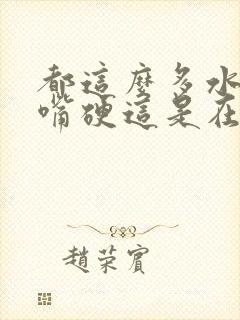 都這麼多水
嘴硬這是在
趙荣賓